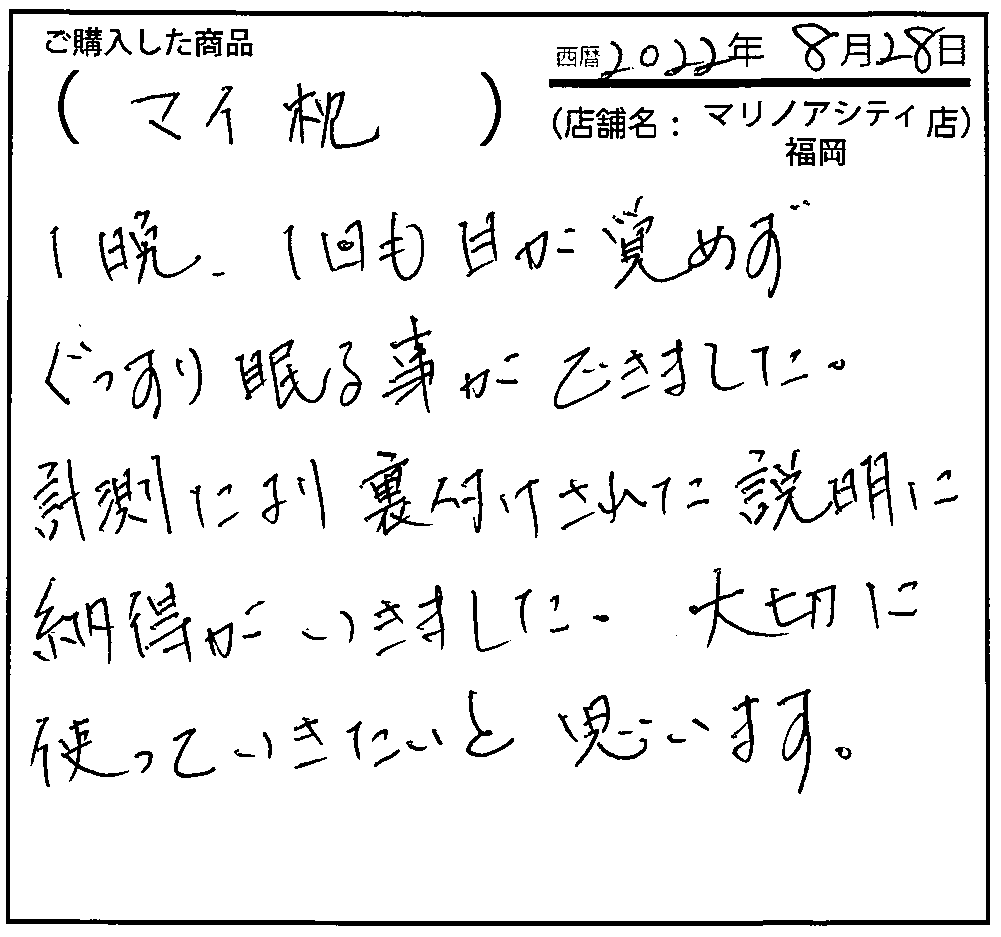 ご購入した商品
(マイ枕)
西暦2022年 8月28日
(店舗名：マリノアシティ福岡店)
1晩、1回も目が覚めず
ぐっすり眠る事ができました。
計測により裏付けされた説明に
納得がいきました。大切に
使っていきたいと思います。